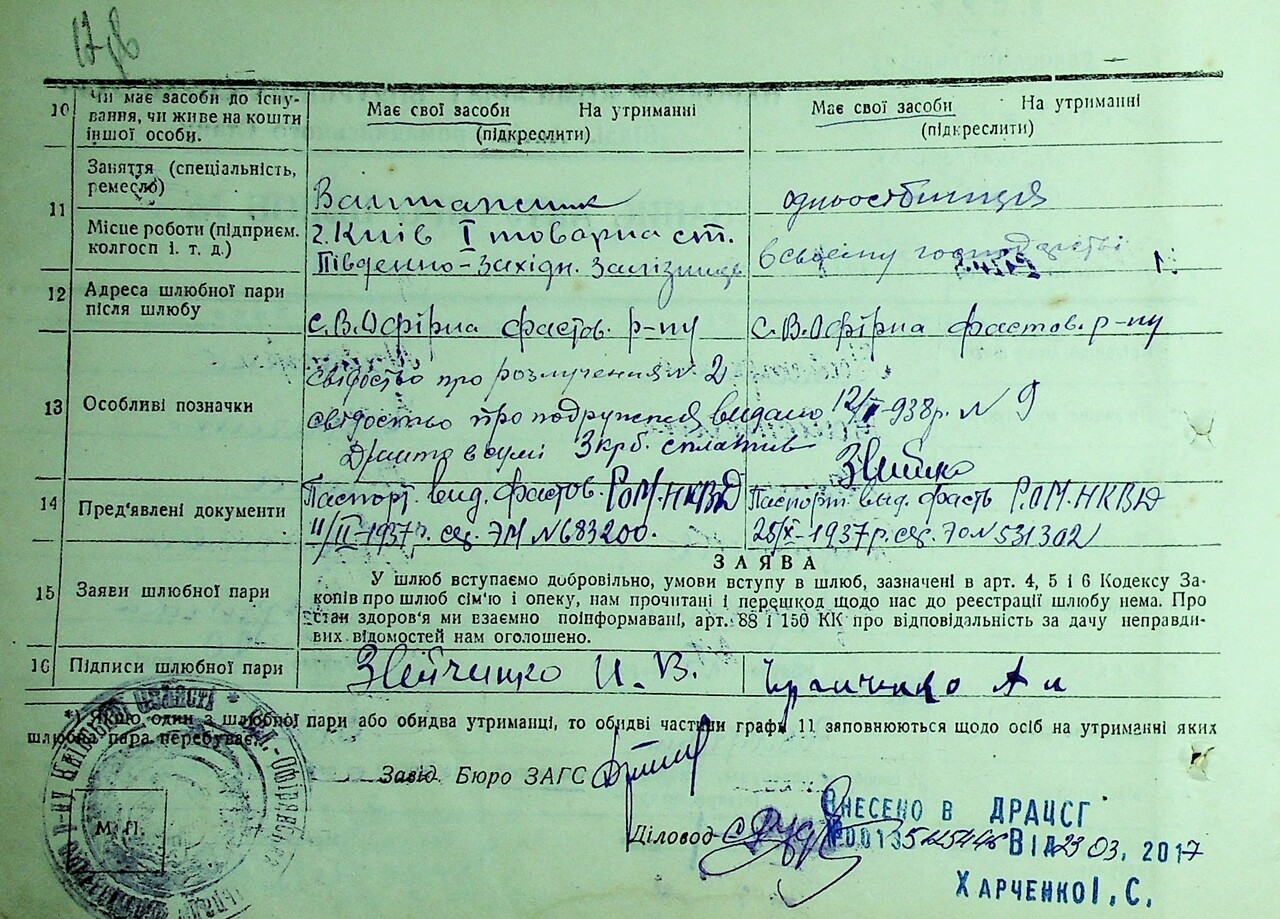 17 зв
10 Чи має засоби до існу-
вання, чи живе на кошти
іншої особи.
Має свої засоби На утриманні
(підкреслити)
Має свої засоби На утриманні
(підкреслити)
11 Заняття (спеціальність,
ремесло)
одноосібниця
Місце роботи (підприєм.
колгосп і. т. д.)
г. Київ І товарна ст.
Південно-Західн. Залізниця
в своєму господарстві
12 Адреса шлюбної пари
після шлюбу
с. В. Офірна фастов. р-ну
с. В. Офірна фастов. р-ну
13 Особливі позначки
свідоство про розлучения N. 2
свідоство про подружжя видано 12/ІІ-938 р. N 9
в сумі 3 крб. сплатив
14 Пред'явлені документи
Паспорт. вид. фастов. РОМ. НКВД
11/ІІ-1937 р. сер. ЭМ N 683200.
Паспорт вид. фаст РОМ. НКВД
28/Х-1937 р. сер. N 531302
15 Заяви шлюбної пари
ЗАЯВА
У шлюб вступаємо добровільно, умови вступу в шлюб, зазначені в арт. 4, 5 і 6 Кодексу За-
конів про шлюб сім'ю і опеку, нам прочитані і перешкод щодо нас до реєстрації шлюбу нема. Про
стан здоров'я ми взаємно поінформавані, арт. 88 і 150 КК про відповідальність за дачу неправди-
вих відомостей нам оголошено.
16 Підписи шлюбної пари
И. В.
*) Якщо один з шлюбної пари або обидва утриманці, то обидві частини графи 11 заповнюються щодо осіб на утриманні яких
шлюбна пара перебуває.
Завід. Бюро ЗАГС
М. П.
Діловод
ВНЕСЕНО В ДРАЦСГ
№00135125446 ВІД 23 03. 2017
ХАРЧЕНКО І. С.